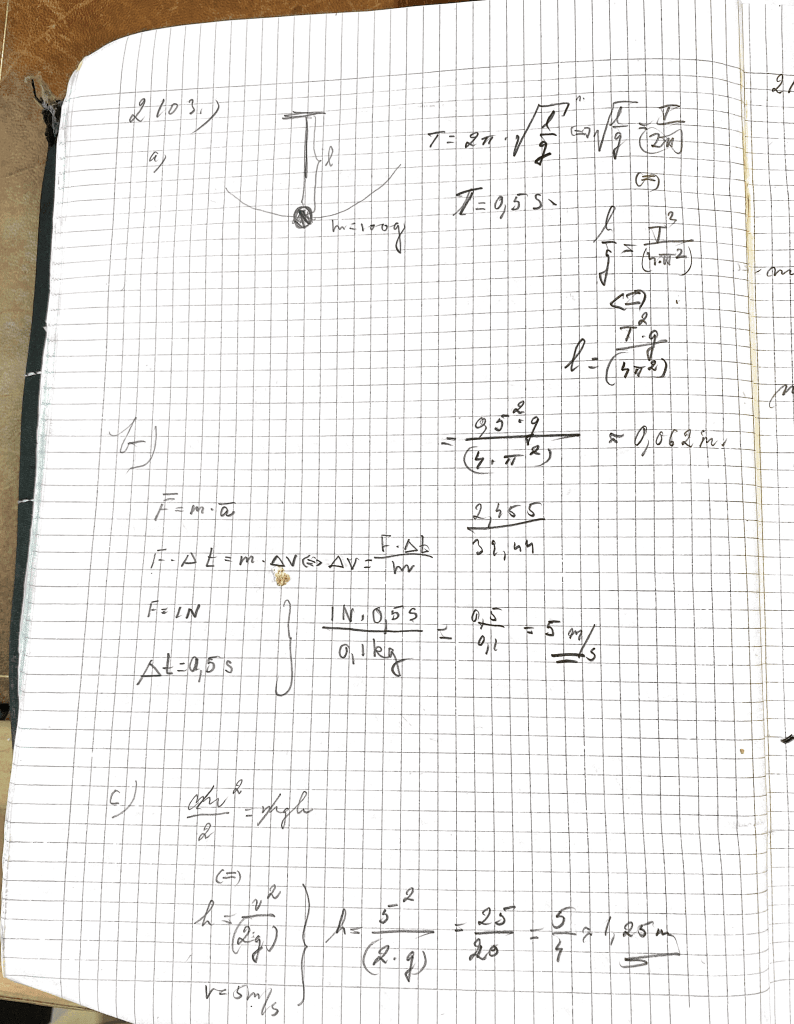 2103.)
a)
l
m=100g
T = 2π · √(l/g) <=> √(l/g) = T/(2π)
T = 0,5 s
<=>
l/g = T²/(4·π²)
<=>
l = T²·g/(4π²)
= 0,5²·g/(4·π²) ≈ 0,062 m.
2,455/39,44
b)
F = m·a
F·Δt = m·Δv <=> Δv = F·Δt/m
F = 1N
Δt = 0,5 s
1N·0,5s/0,1kg = 0,5/0,1 = 5 m/s
c)
mv²/2 = mgh
<=>
h = v²/(2·g)
v = 5m/s
h = 5²/(2·g) = 25/20 = 5/4 ≈ 1,25 m
21
m